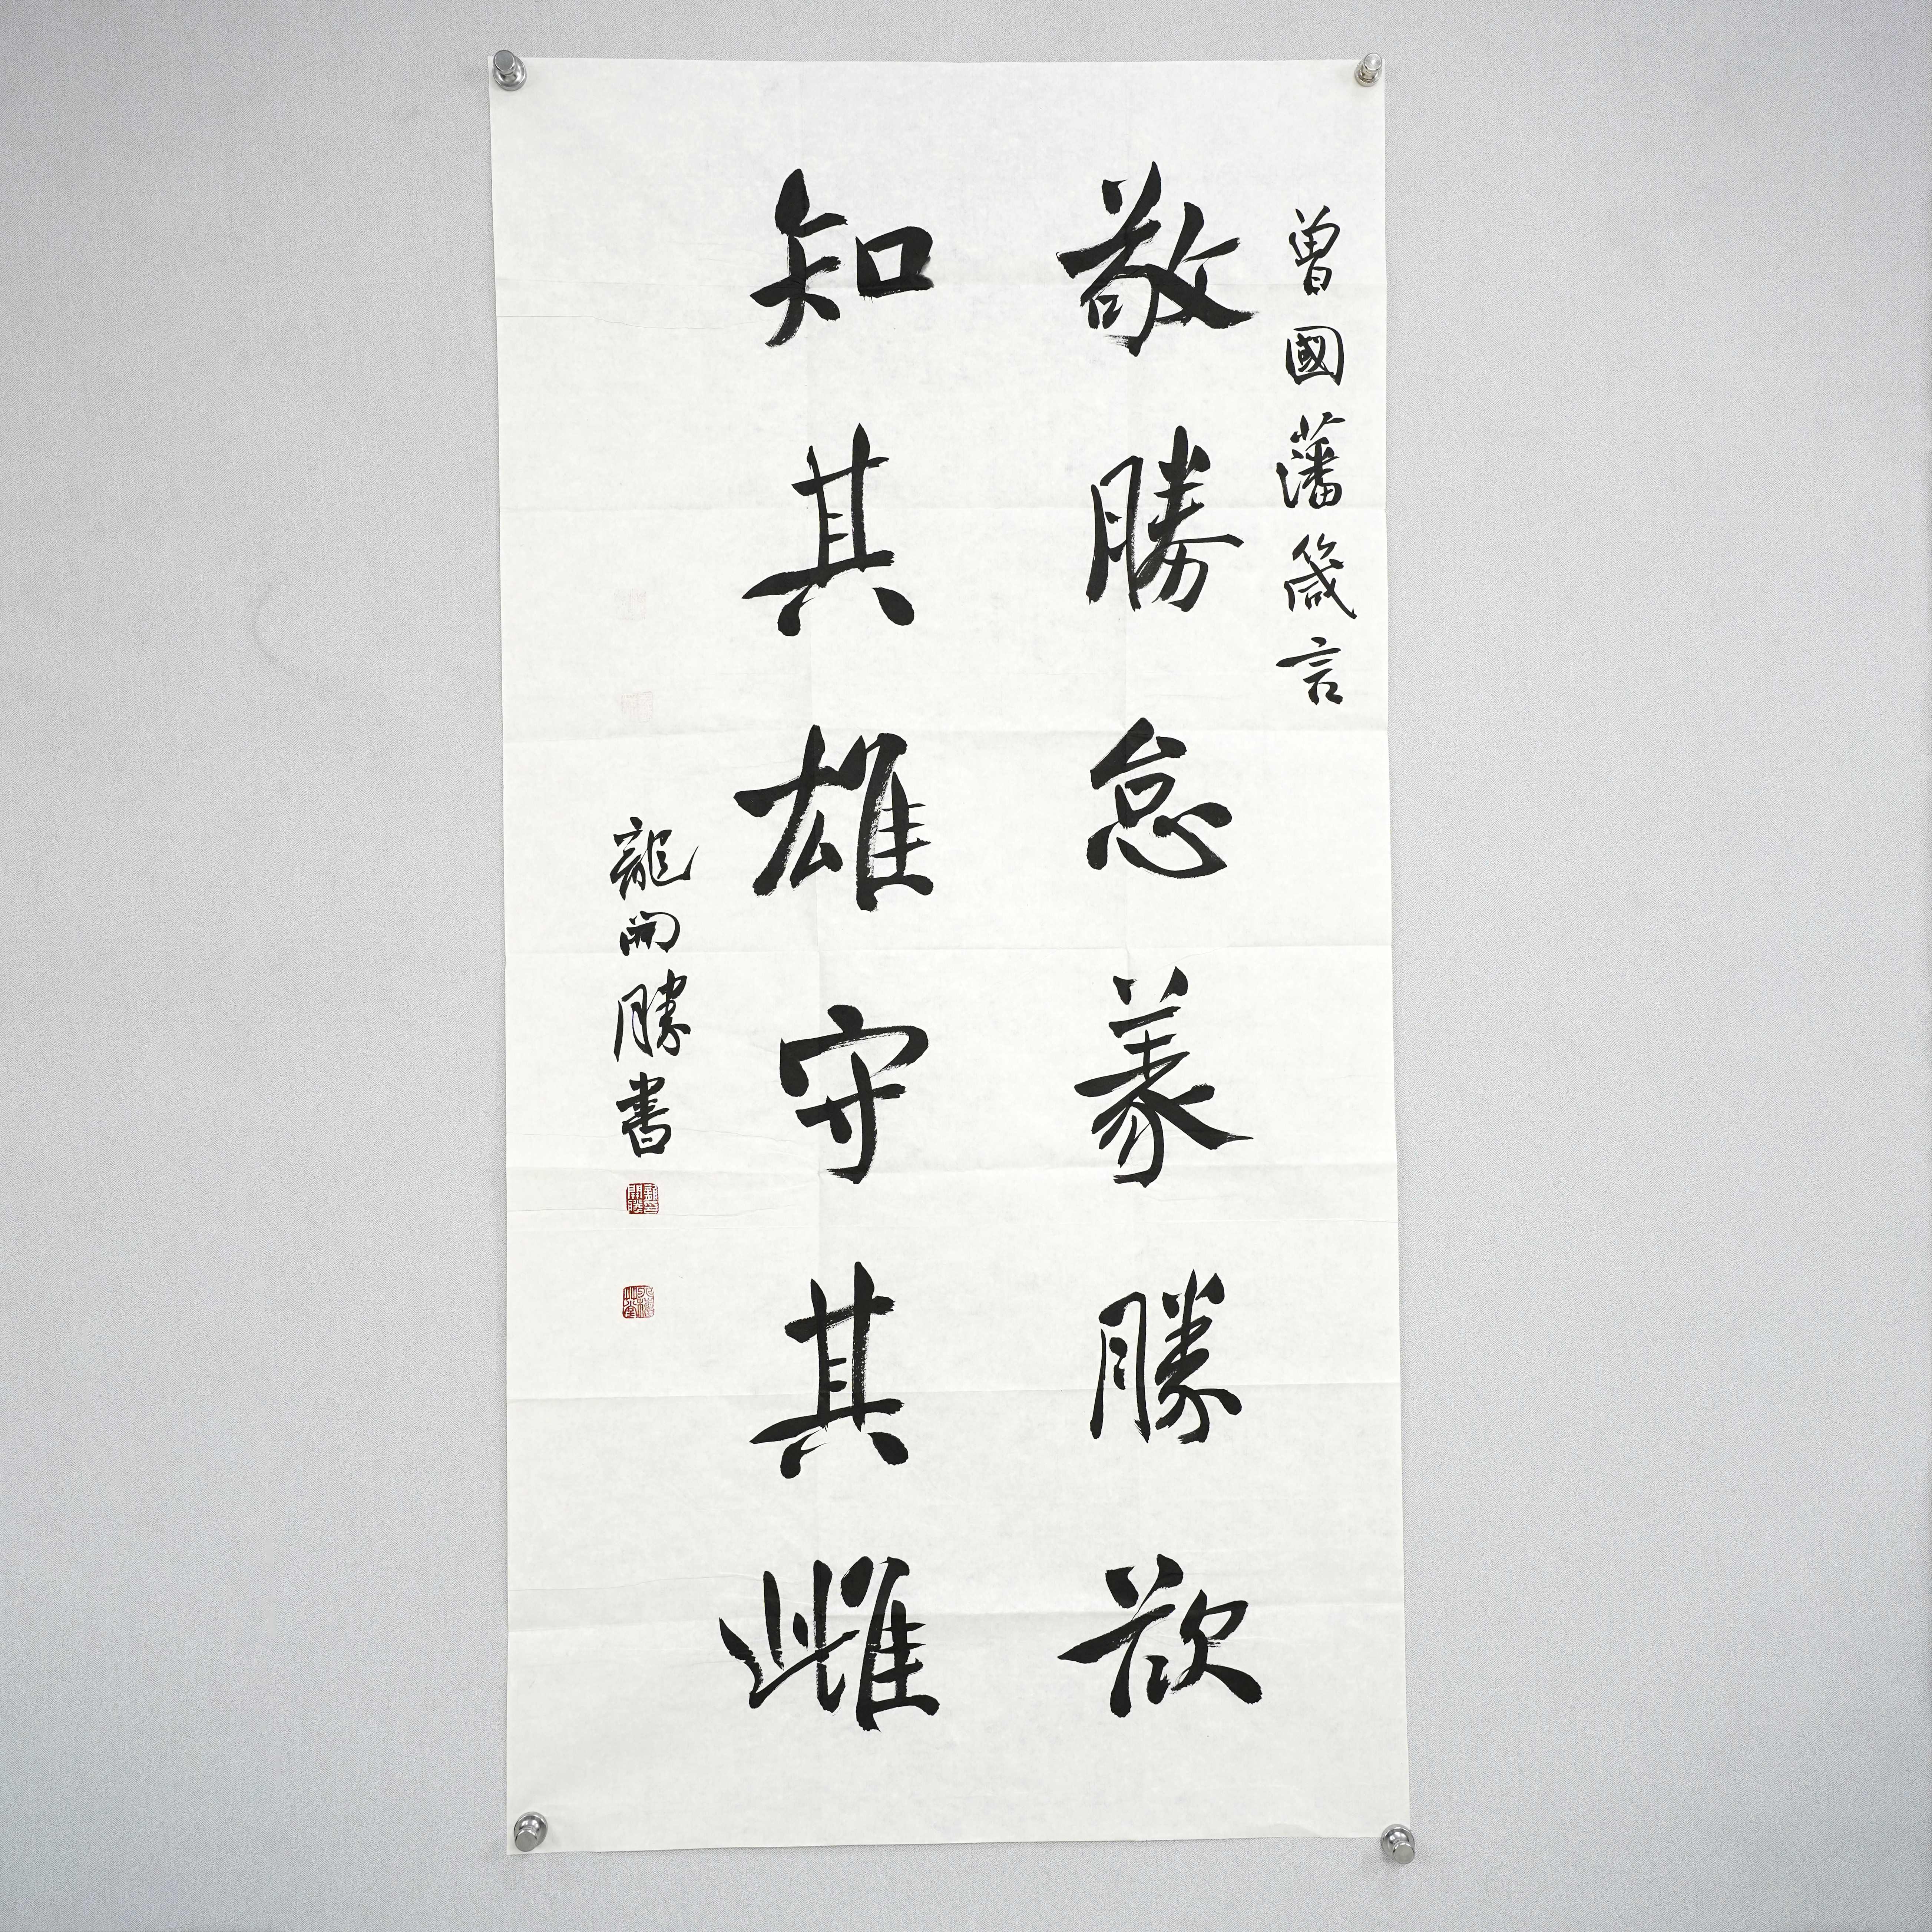 曾國藩箴言
敬勝怠義勝欲
知其雄守其雌
龍開勝書